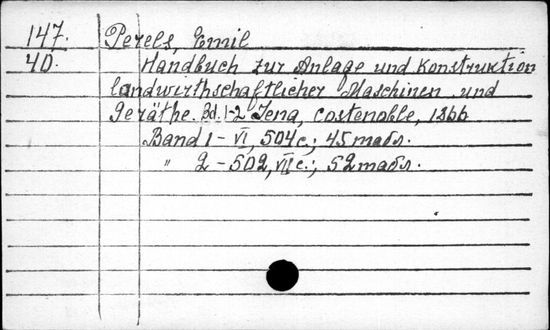 147. Perels, Emil
40. Handbuch zur Anlage und Konstruktion
landwirthschaftlicher Maschinen und
Geräthe. Bd. 1-2 Jena, Costenoble, 1866
Band 1 - VI, 504 c.; 45 табл.
" 2 - 502, VII c.; 52 табл.